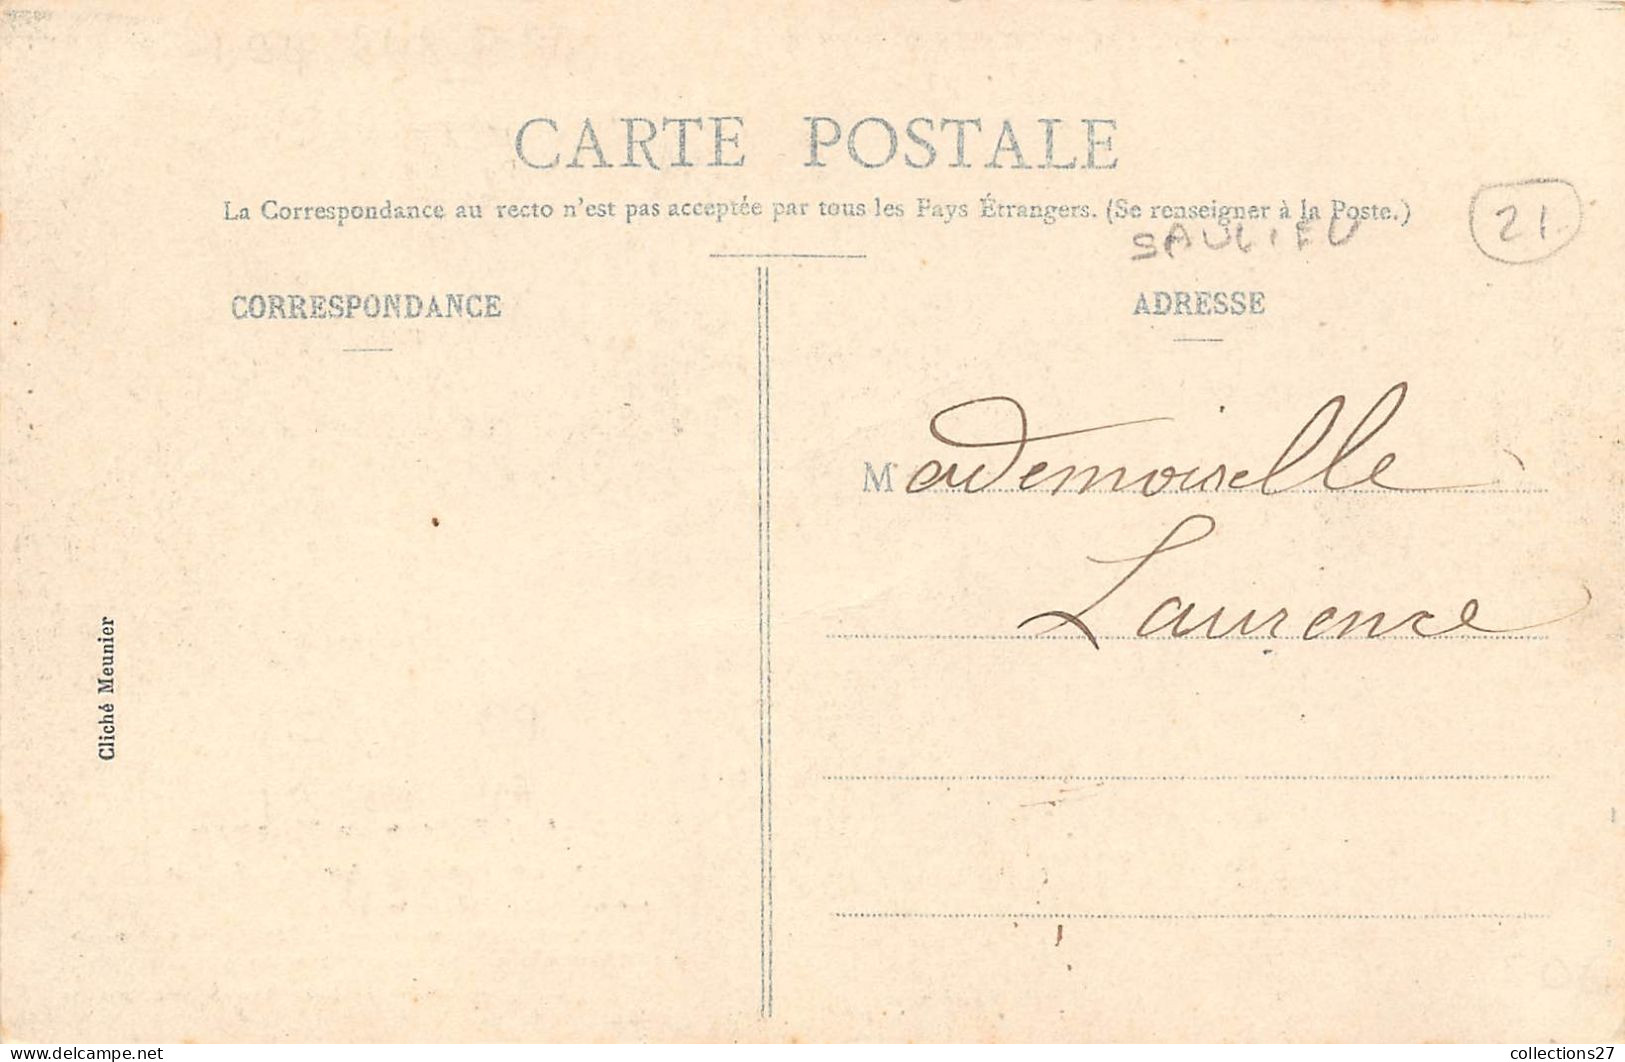 CARTE POSTALE
La Correspondance au recto n'est pas acceptée par tous les Pays Étrangers. (Se renseigner à la Poste.)
21
SAULIEU
CORRESPONDANCE
ADRESSE
Mademoiselle
Laurence
Cliché Meunier
collections27